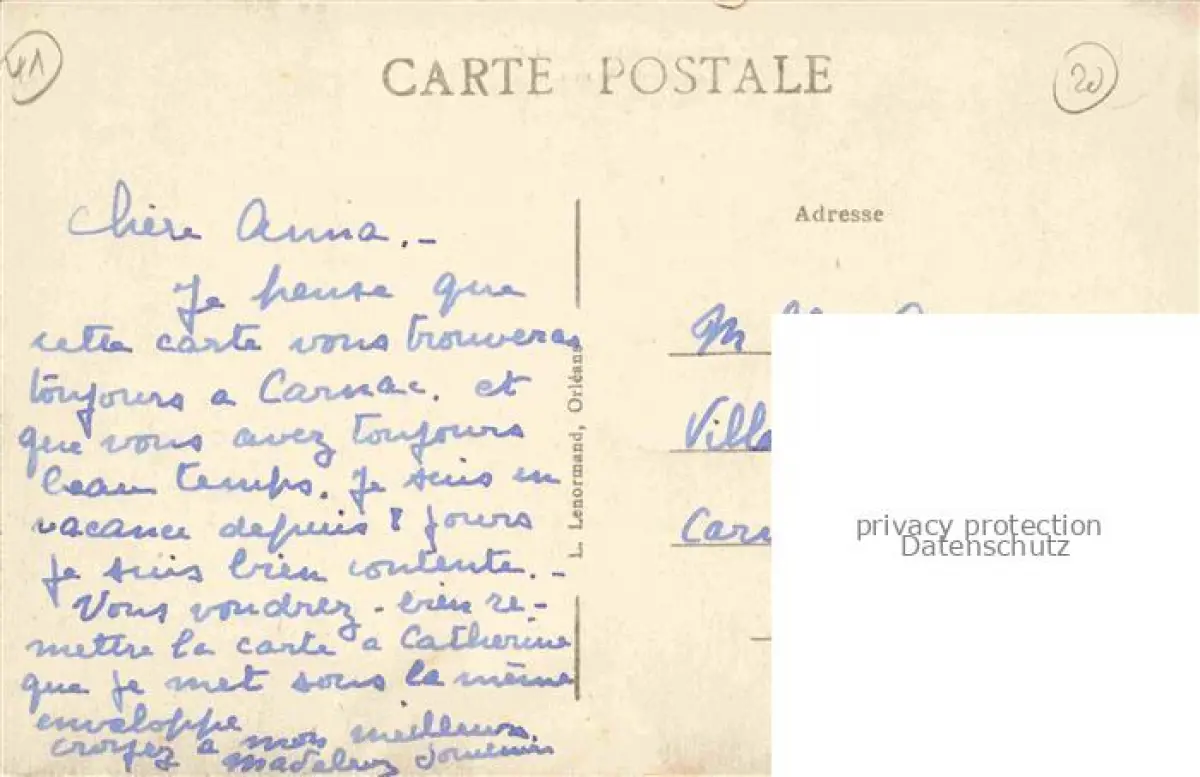 41
CARTE POSTALE
20
Chère Anna. -
Je pense que
cette carte vous trouveras
toujours a Carnac. et
que vous avez toujours
beau temps. Je suis en
vacance depuis 8 jours
je suis bien contente. -
Vous voudrez - bien re-
mettre la carte a Catherine
que je met sous la même
enveloppe
croyez a mon meilleurs.
souvenirs
L. Lenormand, Orléans
Adresse
M
Villa
Car
privacy protection
Datenschutz